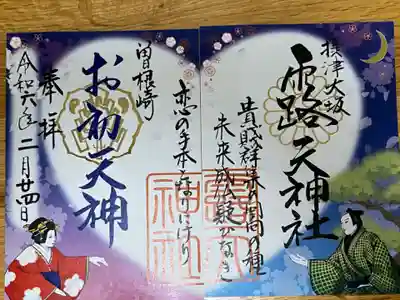 摂津大坂
露天神社
貴賎群集の回向の種
未来成仏疑ひなき
曽根崎
恋の手本となりにけり
お初天神
奉拝
令和六年二月廿四日